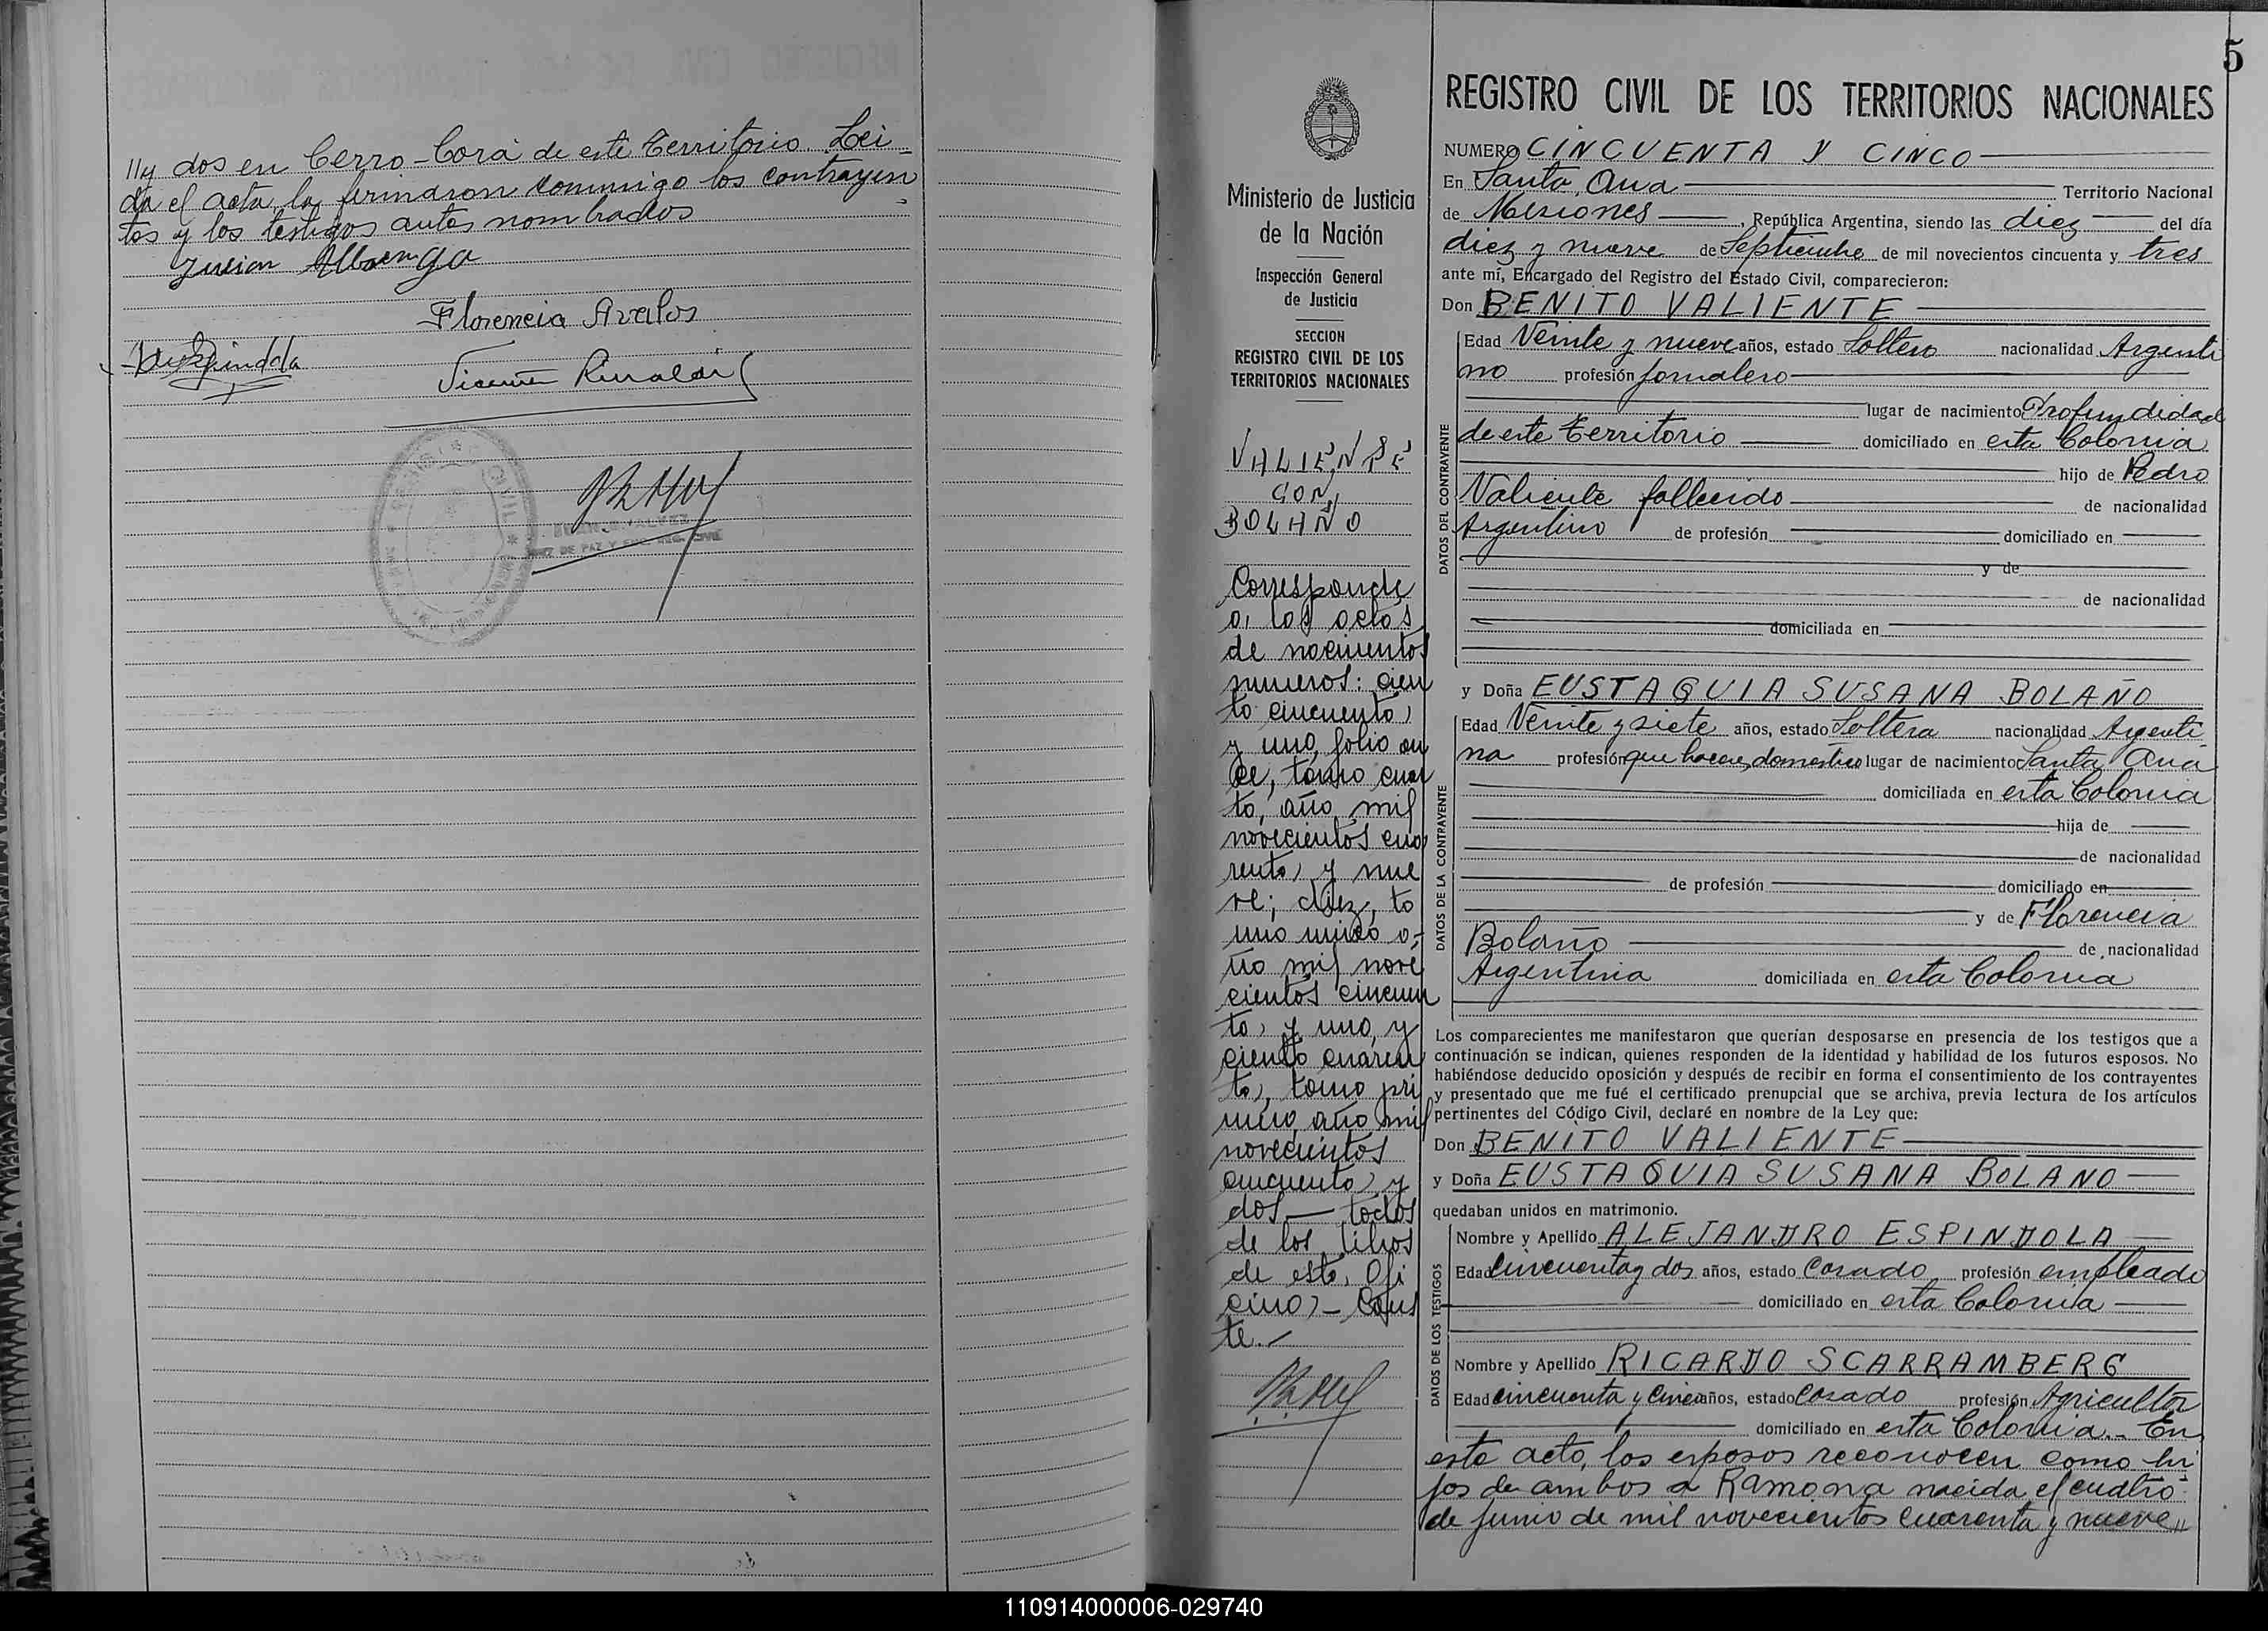 //y dos en Cerro-Corá de este Territorio. Lei-
da el acta, la firmaron conmigo los contrayen-
tes y los testigos antes nombrados
Albarenga
Florencia Avalos
Espindola
Vicente
REGISTRO CIVIL
JUEZ DE PAZ Y ENC. REG. CIVIL
5
Ministerio de Justicia
de la Nación
Inspección General
de Justicia
SECCION
REGISTRO CIVIL DE LOS
TERRITORIOS NACIONALES
VALIENTE
CON
BOLAÑO
Corresponde
a, las actas
de nacimientos
numeros: cien
to cincuenta,
y uno, folio on
ce, tomo cuar
to, año mil
novecientos cua
renta, y nue
ve; diez, to
mo unico a,-
ño mil nove
cientos cincuen
ta, y uno, y
ciento cuaren
ta, tomo pri
mero, año mil
novecientos
cincuenta, y
dos — todos
de los libros
de esta, Ofi
cina,- Cons
te.-
REGISTRO CIVIL DE LOS TERRITORIOS NACIONALES
NUMERO CINCUENTA Y CINCO
En Santa Ana Territorio Nacional
de Misiones, República Argentina, siendo las diez del día
diez y nueve de Septiembre de mil novecientos cincuenta y tres
ante mí, Encargado del Registro del Estado Civil, comparecieron:
Don BENITO VALIENTE
DATOS DEL CONTRAYENTE
Edad Veinte y nueve años, estado Soltero nacionalidad Argenti
no profesión jornalero
lugar de nacimiento Profundidad
de este Territorio domiciliado en esta Colonia
hijo de Pedro
Valiente fallecido de nacionalidad
Argentino de profesión domiciliado en
y de
de nacionalidad
domiciliada en
y Doña EUSTAQUIA SUSANA BOLAÑO
DATOS DE LA CONTRAYENTE
Edad Veinte y siete años, estado Soltera nacionalidad Argenti
na profesión que haceres domestico lugar de nacimiento Santa Ana
domiciliada en esta Colonia
hija de
de nacionalidad
de profesión domiciliado en
y de Florencia
Bolaño de nacionalidad
Argentina domiciliada en esta Colonia
Los comparecientes me manifestaron que querían desposarse en presencia de los testigos que a
continuación se indican, quienes responden de la identidad y habilidad de los futuros esposos. No
habiéndose deducido oposición y después de recibir en forma el consentimiento de los contrayentes
y presentado que me fué el certificado prenupcial que se archiva, previa lectura de los artículos
pertinentes del Código Civil, declaré en nombre de la Ley que:
Don BENITO VALIENTE
y Doña EUSTAQUIA SUSANA BOLANO
quedaban unidos en matrimonio.
DATOS DE LOS TESTIGOS
Nombre y Apellido ALEJANDRO ESPINDOLA
Edad Cincuenta y dos años, estado Casado profesión empleado
domiciliado en esta Colonia
Nombre y Apellido RICARDO SCARRAMBERG
Edad cincuenta y cinco años, estado Casado profesión Agricultor
domiciliado en esta Colonia.- En
este acto, los esposos reconocen como hi-
jos de ambos a Ramona nacida el cuatro
de junio de mil novecientos cuarenta y nueve//
110914000006-029740